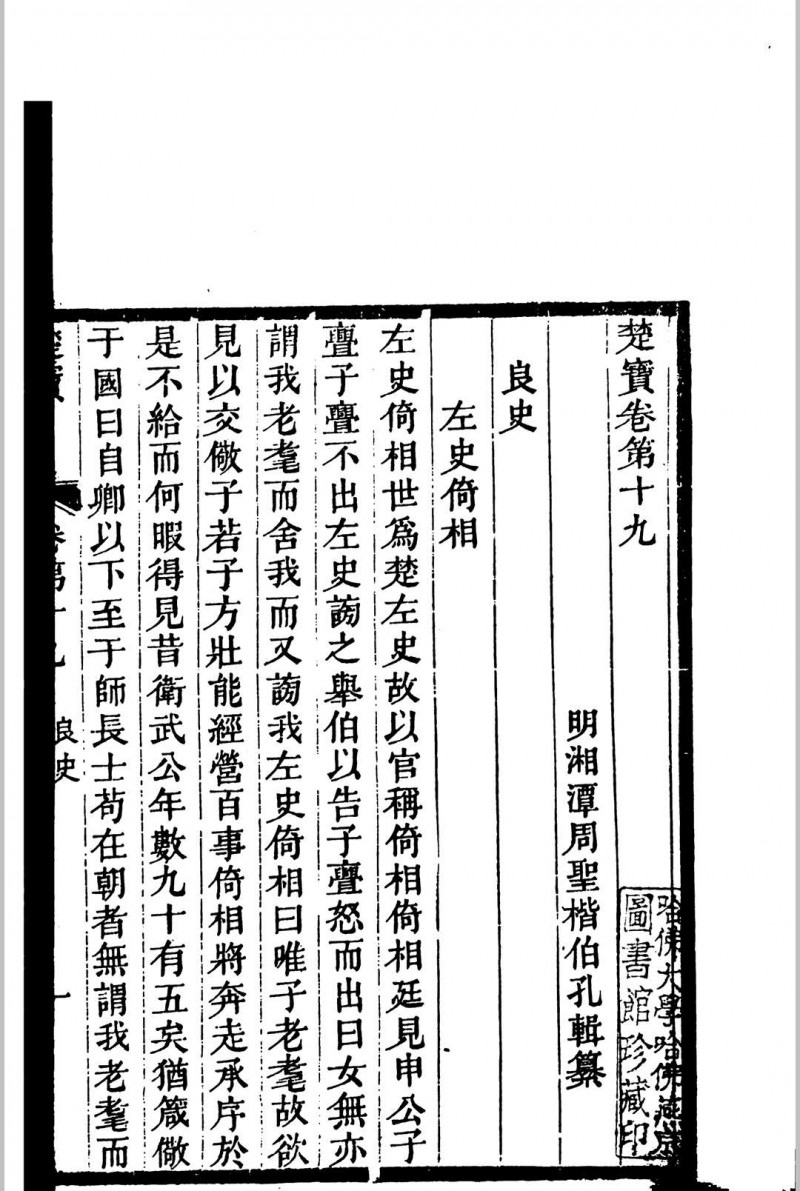 楚寶卷第十九
明湘潭周聖楷伯孔輯纂
良史
左史倚相
左史倚相世爲楚左史故以官稱倚相倚相廷見申公子
亹子亹不出左史謗之舉伯以告子亹怒而出曰女無亦
謂我老耄而舍我而又謗我左史倚相曰唯子老耄故欲
見以交儆子若子方壯能經營百事倚相將奔走承序於
是不給而何暇得見昔衛武公年數九十有五矣猶箴儆
于國曰自卿以下至于師長士苟在朝者無謂我老耄而
楚寶 卷第十九 良史 一
哈佛大學哈佛燕京
圖書館珍藏印